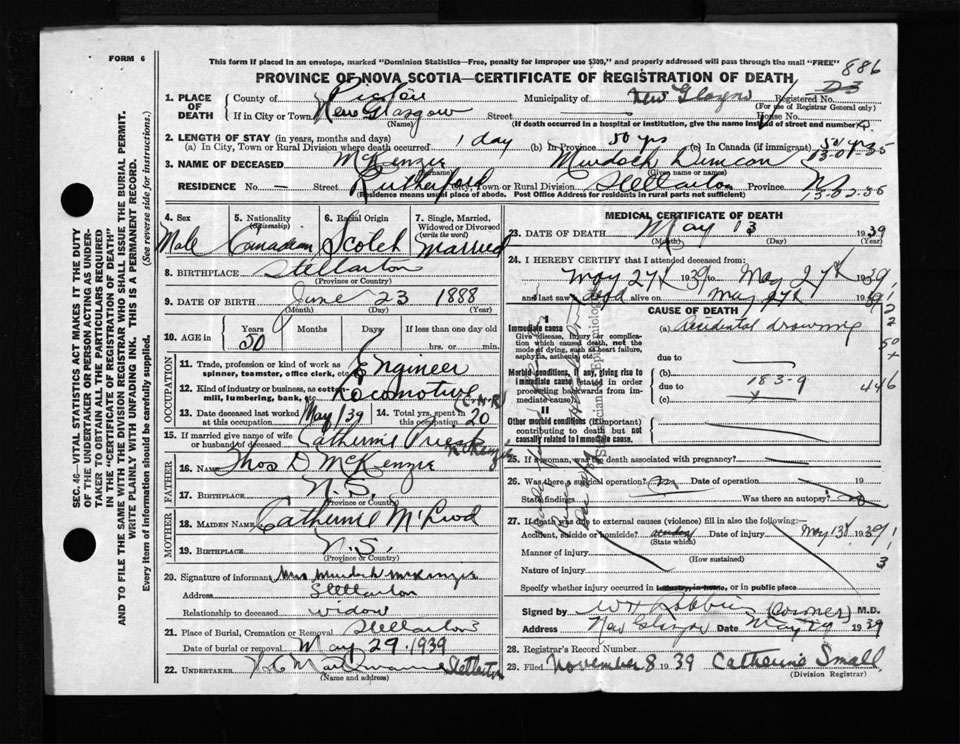 FORM 6
This form if placed in an envelope, marked "Dominion Statistics—Free, penalty for improper use $300," and properly addressed will pass through the mail "FREE"
PROVINCE OF NOVA SCOTIA—CERTIFICATE OF REGISTRATION OF DEATH
886
1. PLACE OF DEATH County of Pictou Municipality of New Glasgow Registered No.
(For use of Registrar General only)
If in City or Town New Glasgow Street House No.
(Name) (If death occurred in a hospital or institution, give the name instead of street and number)
2. LENGTH OF STAY (in years, months and days)
(a) In City, Town or Rural Division where death occurred 1 day (b) In Province 50 yrs (c) In Canada (if immigrant) 50 yrs
3. NAME OF DECEASED McKenzie Murdoch Duncan
(Surname) (Given name or names)
RESIDENCE No. — Street Rutherford City, Town or Rural Division Stellarton Province NS
(Residence means usual place of abode. Post Office Address for residents in rural parts not sufficient)
4. Sex Male
5. Nationality (Citizenship) Canadian
6. Racial Origin Scotch
7. Single, Married, Widowed or Divorced (write the word) Married
8. BIRTHPLACE Stellarton
(Province or Country)
9. DATE OF BIRTH June 23 1888
(Month) (Day) (Year)
10. AGE in Years Months Days If less than one day
50 hrs. or min.
OCCUPATION
11. Trade, profession or kind of work as spinner, teamster, office clerk, etc. Engineer
12. Kind of industry or business, as cotton-mill, lumbering, bank, etc. Locomotive (C.N.R)
13. Date deceased last worked at this occupation May 139
14. Total yrs. spent in this occupation 20
15. If married give name of wife or husband of deceased Catherine McKenzie
FATHER
16. Name Thos D McKenzie
17. Birthplace N.S.
(Province or Country)
MOTHER
18. Maiden Name Catherine McLeod
19. Birthplace N.S.
(Province or Country)
20. Signature of informant Mrs Murdoch McKenzie
Address Stellarton
Relationship to deceased widow
21. Place of Burial, Cremation or Removal Stellarton
Date of burial or removal May 29 1939
22. Undertaker Stellarton
(Name and address)
MEDICAL CERTIFICATE OF DEATH
23. DATE OF DEATH May 13 1939
(Month) (Day) (Year)
24. I HEREBY CERTIFY that I attended deceased from:
May 27th 1939 to May 27th 1939
and last saw dead alive on May 27th 1939
CAUSE OF DEATH
I
Immediate cause
Give disease, injury or complication which caused death, not the mode of dying, such as heart failure, asphyxia, asthenia, etc.
(a) Accidental drowning
due to
Morbid conditions, if any, giving rise to immediate cause (stated in order proceeding backwards from immediate cause).
(b)
due to 183-9
(c) x
446
II
Other morbid conditions (if important) contributing to death but not causally related to immediate cause.
25. If a woman, was the death associated with pregnancy?
26. Was there a surgical operation? no Date of operation 19
State findings Was there an autopsy? no
27. If death was due to external causes (violence) fill in also the following:—
Accident, suicide or homicide? accident Date of injury May 13th 1939
(State which)
Manner of injury (How sustained)
Nature of injury
Specify whether injury occurred in industry, in home, or in public place
Signed by (Coroner) M.D.
Address New Glasgow Date May 29 1939
28. Registrar's Record Number
29. Filed November 8 1939 Catherine Small
(Division Registrar)
SEC. 46—VITAL STATISTICS ACT MAKES IT THE DUTY
OF THE UNDERTAKER OR PERSON ACTING AS UNDER-
TAKER TO OBTAIN ALL THE PARTICULARS REQUIRED
IN THE "CERTIFICATE OF REGISTRATION OF DEATH"
AND TO FILE THE SAME WITH THE DIVISION REGISTRAR WHO SHALL ISSUE THE BURIAL PERMIT.
WRITE PLAINLY WITH UNFADING INK. THIS IS A PERMANENT RECORD.
Every item of information should be carefully supplied. (See reverse side for instructions.)